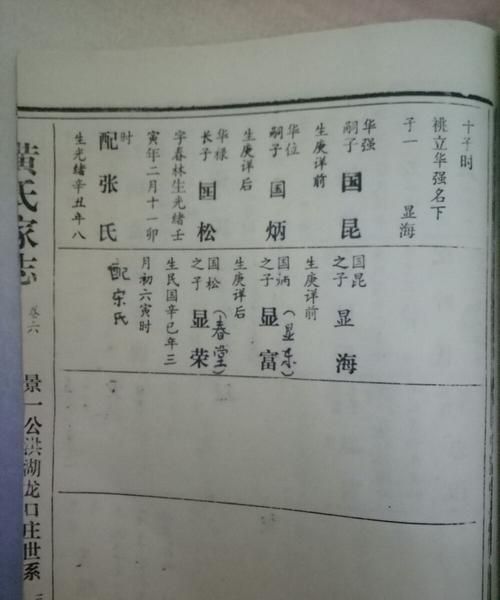 十子时
桃立华强名下
子一 显海
华强
嗣子 国昆
生庚详前
华位
嗣子 国炳
生庚详后
华禄
长子 国松
字春林生光绪壬
寅年二月十一卯
时
配张氏
生光绪辛丑年八
国昆
之子 显海
生庚详前
国炳
之子 显富
(显东)
生庚详后
国松
之子 显荣
(春堂)
生民国辛巳年三
月初六寅时
配宋氏
黄氏家志
卷六
景一公洪湖龙口庄世系